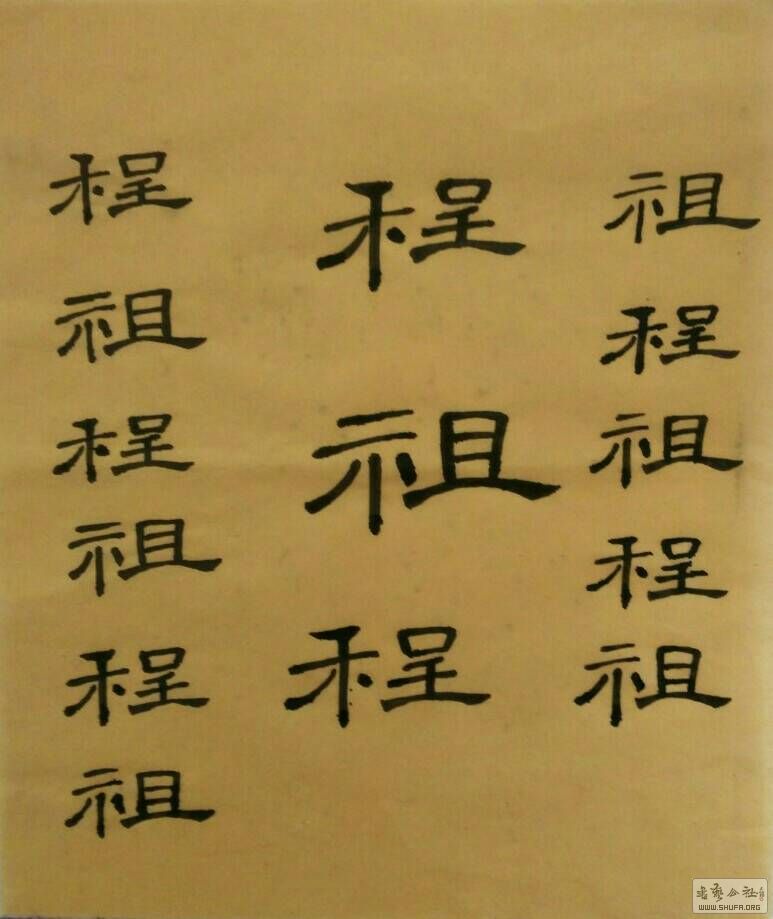 祖程祖程祖
程祖程
程祖程祖程祖
書藝公社
WWW.SHUFA.ORG